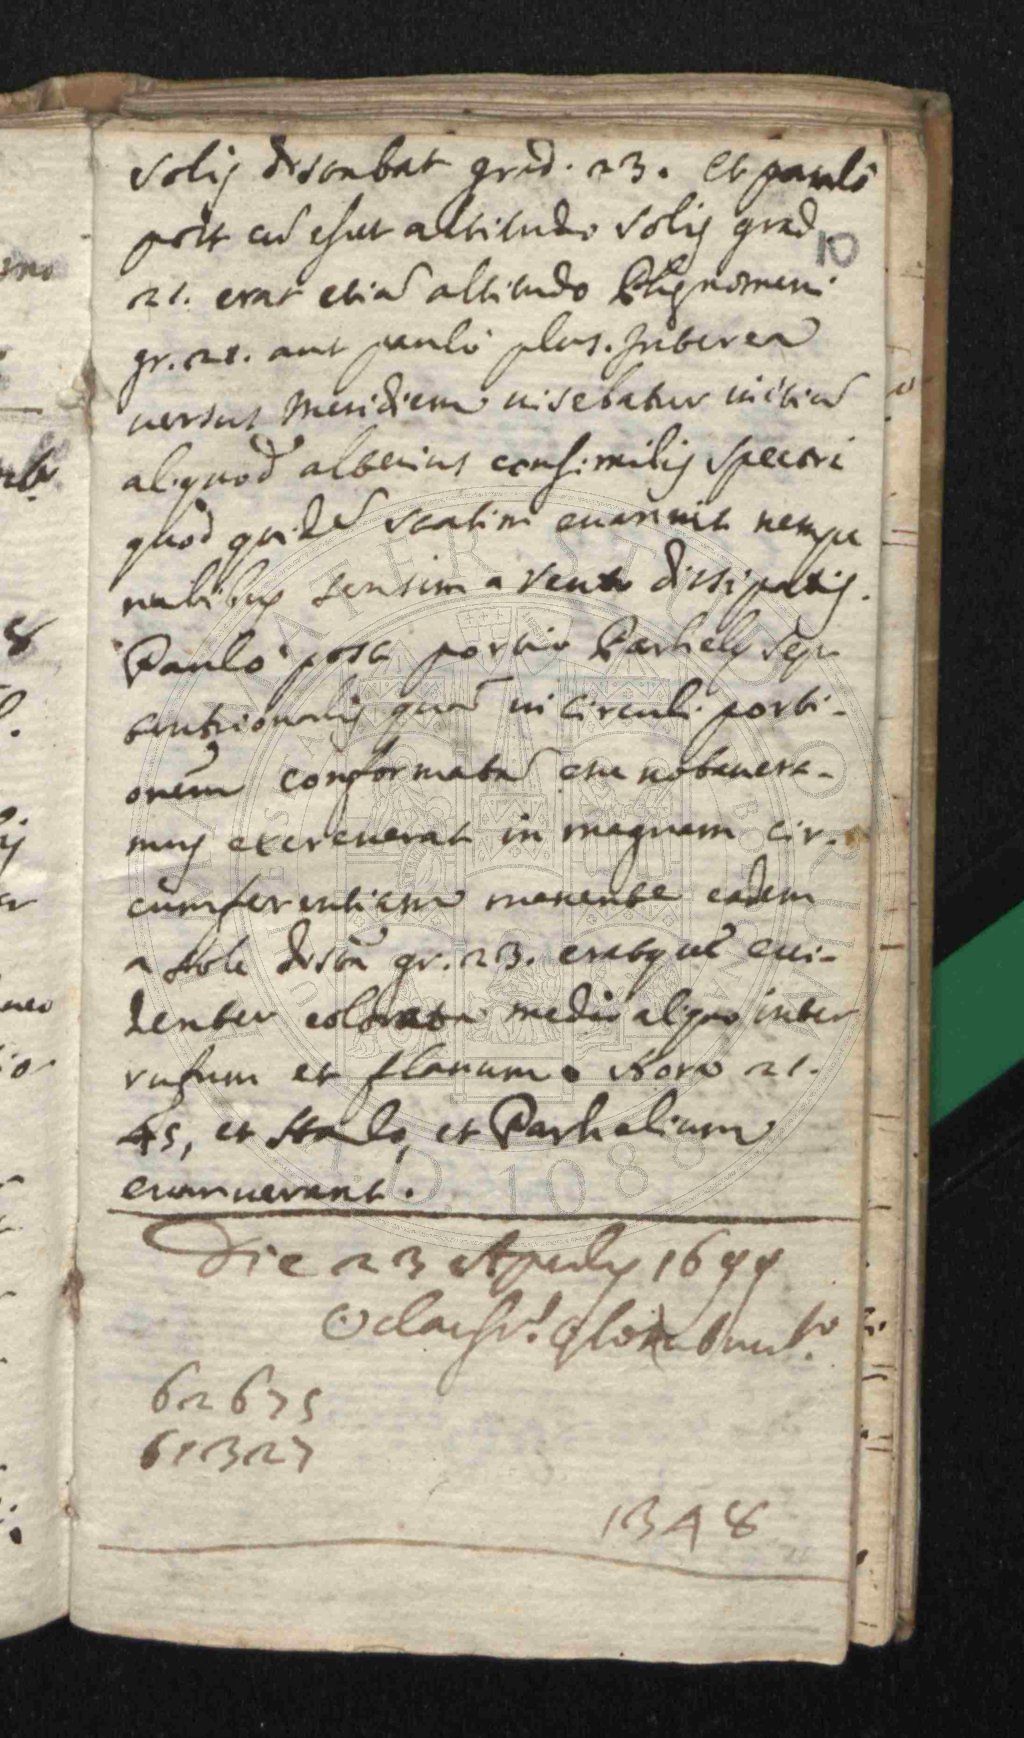 Solis distabat grad. 23. et paulò
post cũ esset altitudo Solis grad
10
21. erat etiã altitudo Phęnomeni
gr. 21. aut paulò plus. Interea
versus Meridiem visebatur initiũ
aliquod alterius consimilis spectri
quod quidẽ statim evanuit nempe
nubibus sensim a vento dissipatis.
Paulò post portio Parhelij Sep-
tentrionalis quã in circuli porti-
onem conformatã esse notavera-
mus excreverat in magnam cir-
cumferentiam manente eadem
a Sole distã gr. 23. eratque evi-
denter colorata medio aliquo inter
rufum et flavum. Hora 21.
45, et Halo, et Parhelium
evanuerant.
Die 23 Aprilis 1699
62675
61327
1348